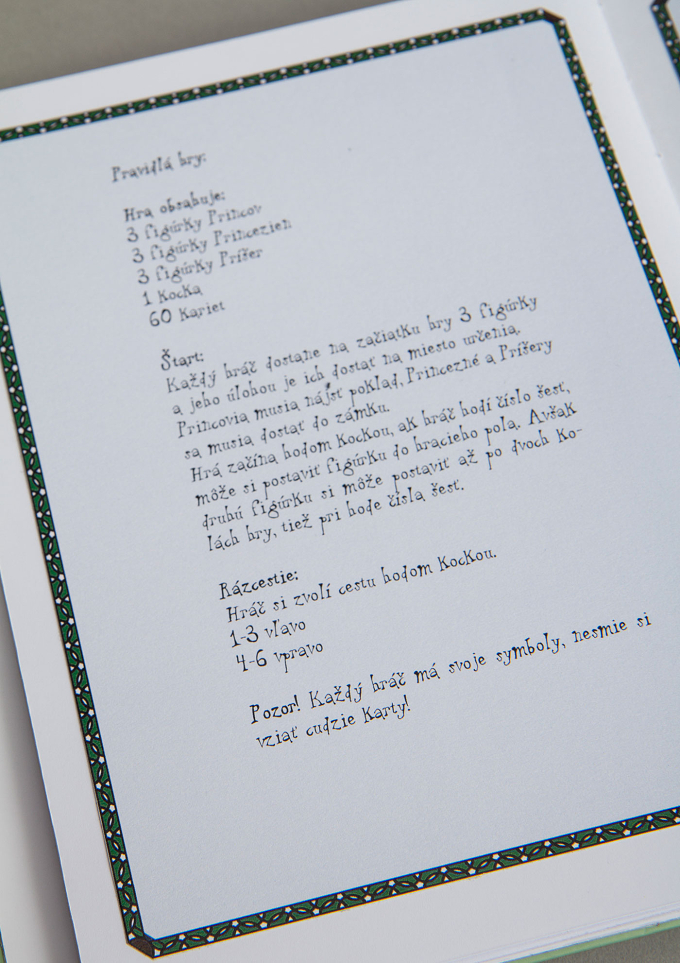 Pravidlá hry:
Hra obsahuje:
3 figúrky Princov
3 figúrky Princezien
3 figúrky Príšer
1 kocka
60 kariet
Štart:
Každý hráč dostane na začiatku hry 3 figúrky
a jeho úlohou je ich dostať na miesto určenia.
Princovia musia nájsť poklad, Princezné a Príšery
sa musia dostať do zámku.
Hrá začína hodom kockou, ak hráč hodí číslo šesť,
môže si postaviť figúrku do hracieho pola. Avšak
druhú figúrku si môže postaviť až po dvoch ko-
lách hry, tiež pri hode čísla šesť.
Rázcestie:
Hráč si zvolí cestu hodom kockou.
1-3 vľavo
4-6 vpravo
Pozor! Každý hráč má svoje symboly, nesmie si
vziať cudzie karty!